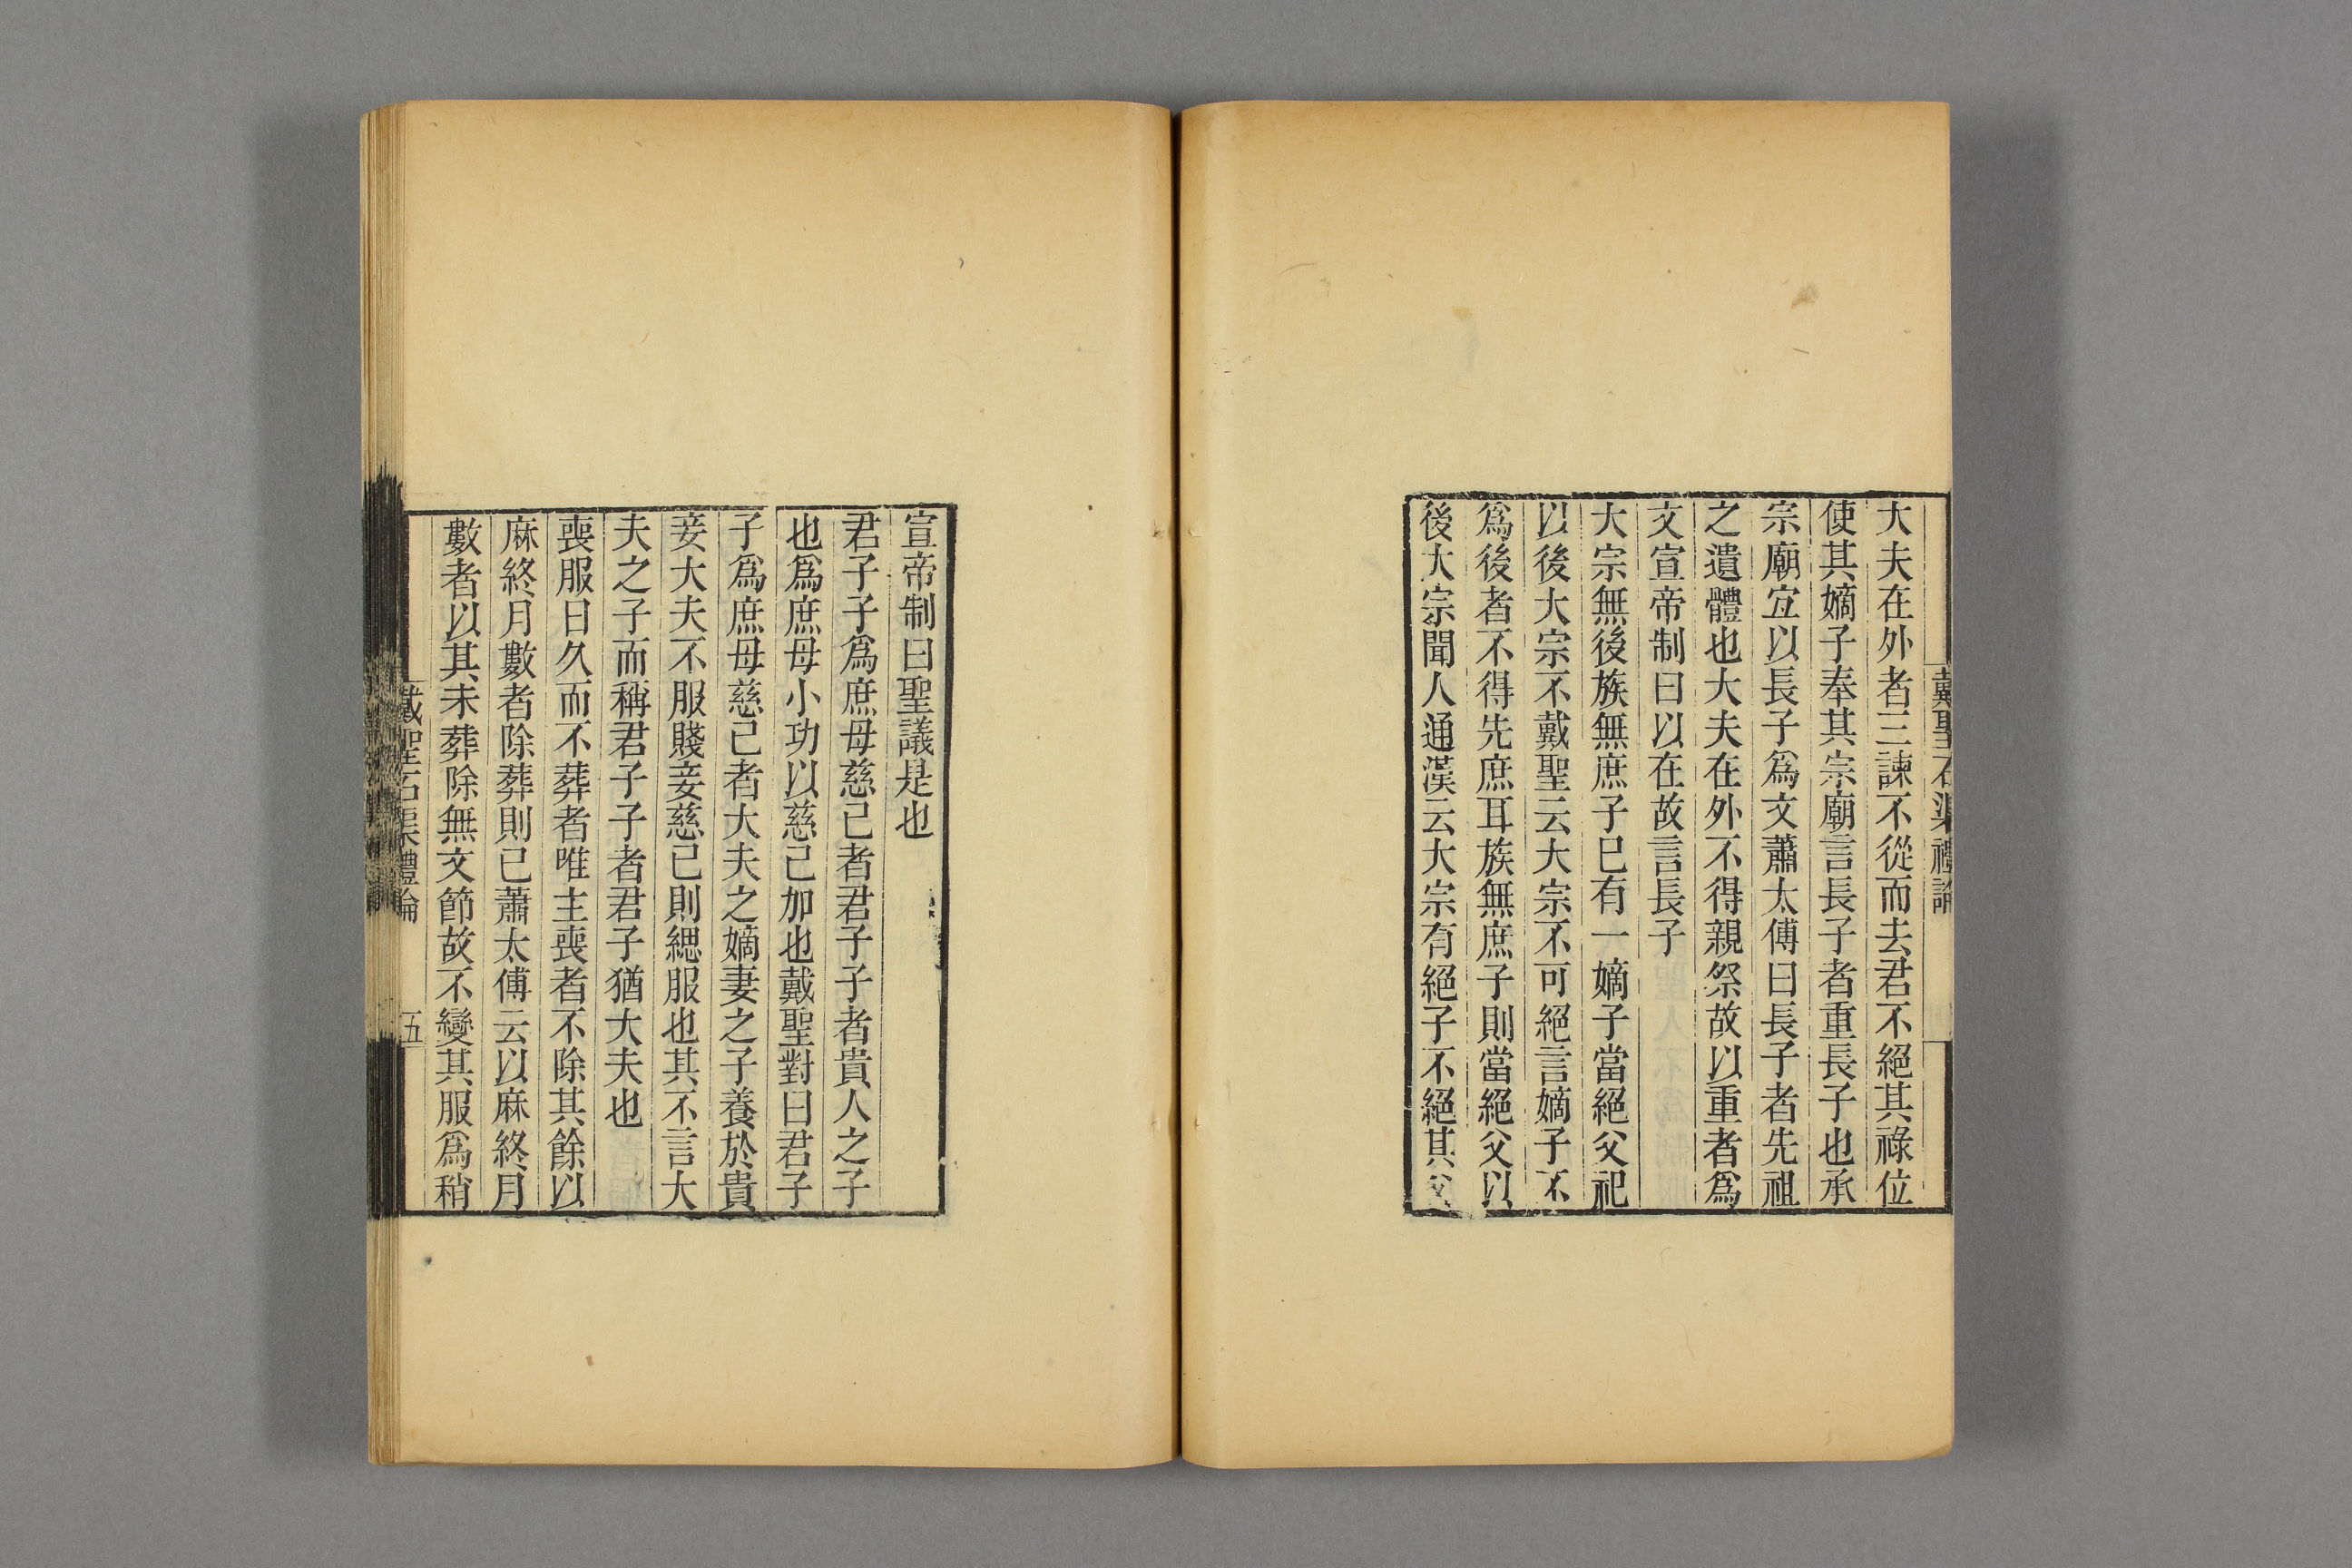 戴聖石渠禮論
大夫在外者三諫不從而去君不絕其祿位
使其嫡子奉其宗廟言長子者重長子也承
宗廟宜以長子爲文蕭太傅曰長子者先祖
之遺體也大夫在外不得親祭故以重者爲
文宣帝制曰以在故言長子
大宗無後族無庶子已有一嫡子當絕父祀
以後大宗不戴聖云大宗不可絕言嫡子不
爲後者不得先庶耳族無庶子則當絕父以
後大宗聞人通漢云大宗有絕子不絕其父
宣帝制曰聖議是也
君子子爲庶母慈己者君子子者貴人之子
也爲庶母小功以慈己加也戴聖對曰君子
子爲庶母慈己者大夫之嫡妻之子養於貴
妾大夫不服賤妾慈己則緦服也其不言大
夫之子而稱君子子者君子猶大夫也
喪服曰久而不葬者唯主喪者不除其餘以
麻終月數者除葬則已蕭太傅云以麻終月
數者以其未葬除無文節故不變其服爲稍
戴聖石渠禮論
五